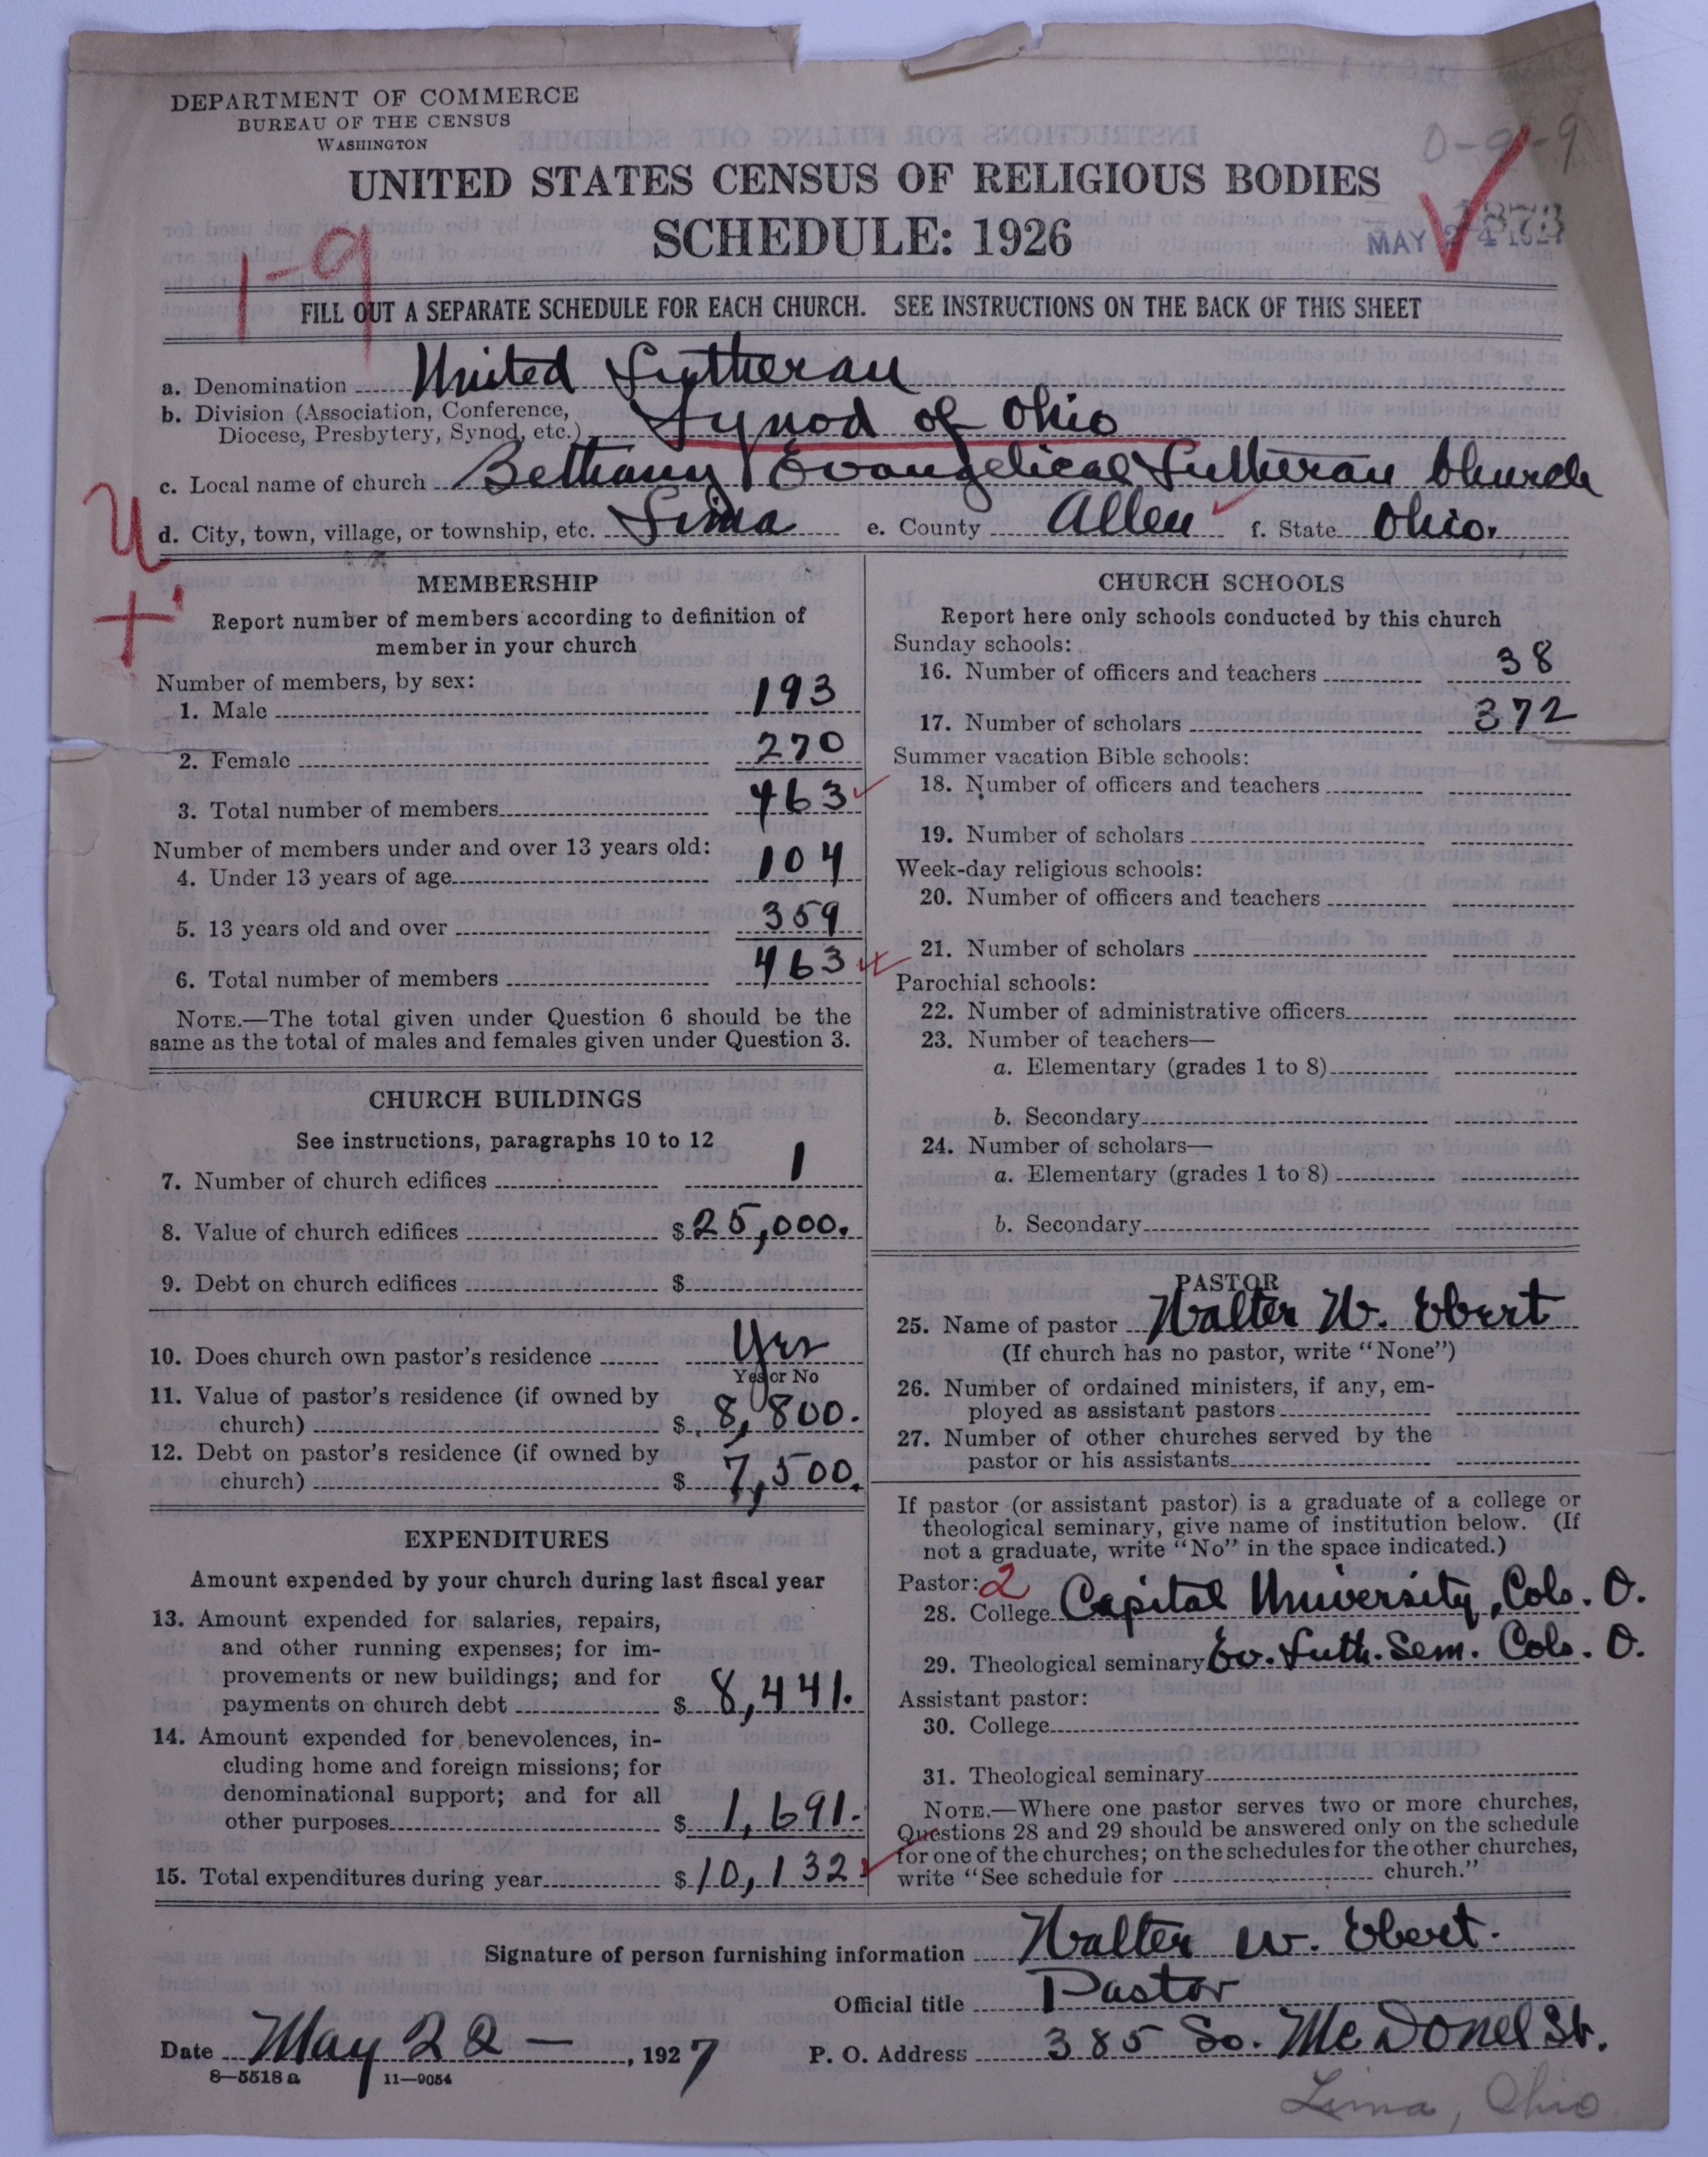 DEPARTMENT OF COMMERCE
BUREAU OF THE CENSUS
WASHINGTON
UNITED STATES CENSUS OF RELIGIOUS BODIES
SCHEDULE: 1926
1-9
MAY 24 1927
FILL OUT A SEPARATE SCHEDULE FOR EACH CHURCH. SEE INSTRUCTIONS ON THE BACK OF THIS SHEET
a. Denomination United Lutheran
b. Division (Association, Conference,
Diocese, Presbytery, Synod, etc.) Synod of Ohio
c. Local name of church Bethany Evangelical Lutheran Church
d. City, town, village, or township, etc. Lima e. County Allen f. State Ohio.
MEMBERSHIP
Report number of members according to definition of
member in your church
Number of members, by sex:
1. Male 193
2. Female 270
3. Total number of members 463
Number of members under and over 13 years old:
4. Under 13 years of age 104
5. 13 years old and over 359
6. Total number of members 463
NOTE.—The total given under Question 6 should be the
same as the total of males and females given under Question 3.
CHURCH BUILDINGS
See instructions, paragraphs 10 to 12
7. Number of church edifices 1
8. Value of church edifices $25,000.
9. Debt on church edifices $
10. Does church own pastor's residence Yes
Yes or No
11. Value of pastor's residence (if owned by
church) $ 8,800.
12. Debt on pastor's residence (if owned by
church) $ 7,500.
EXPENDITURES
Amount expended by your church during last fiscal year
13. Amount expended for salaries, repairs,
and other running expenses; for im-
provements or new buildings; and for
payments on church debt $ 8,441.
14. Amount expended for benevolences, in-
cluding home and foreign missions; for
denominational support; and for all
other purposes $ 1,691.
15. Total expenditures during year $10,132
CHURCH SCHOOLS
Report here only schools conducted by this church
Sunday schools:
16. Number of officers and teachers 38
17. Number of scholars 372
Summer vacation Bible schools:
18. Number of officers and teachers
19. Number of scholars
Week-day religious schools:
20. Number of officers and teachers
21. Number of scholars
Parochial schools:
22. Number of administrative officers
23. Number of teachers—
a. Elementary (grades 1 to 8)
b. Secondary
24. Number of scholars—
a. Elementary (grades 1 to 8)
b. Secondary
PASTOR
25. Name of pastor Walter W. Ebert
(If church has no pastor, write "None")
26. Number of ordained ministers, if any, em-
ployed as assistant pastors
27. Number of other churches served by the
pastor or his assistants
If pastor (or assistant pastor) is a graduate of a college or
theological seminary, give name of institution below. (If
not a graduate, write "No" in the space indicated.)
Pastor: 2
28. College Capital University, Cols. O.
29. Theological seminary Ev. Luth. Sem. Cols. O.
Assistant pastor:
30. College
31. Theological seminary
NOTE.—Where one pastor serves two or more churches,
Questions 28 and 29 should be answered only on the schedule
for one of the churches; on the schedules for the other churches,
write "See schedule for church."
Signature of person furnishing information Walter W. Ebert.
Official title Pastor
Date May 22 — , 1927 P. O. Address 385 So. McDonel St.
8—5518a 11—9054
Lima, Ohio